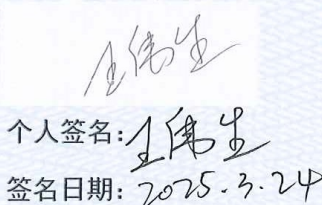 王伟生
个人签名:王伟生
签名日期:2025.3.24